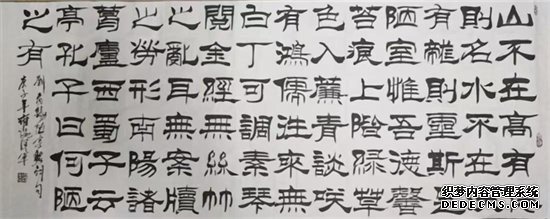 山不在高有仙
則名水不在深
有龍則靈斯是
陋室惟吾德馨
苔痕上階綠草
色入簾青談笑
有鴻儒往來無
白丁可調素琴
閱金經無絲竹
之亂耳無案牘
之勞形南陽諸
葛廬西蜀子云
亭孔子曰何陋
之有
劉禹錫陋室銘詞句
庚子年
织梦内容管理系统
DEDECMS.COM